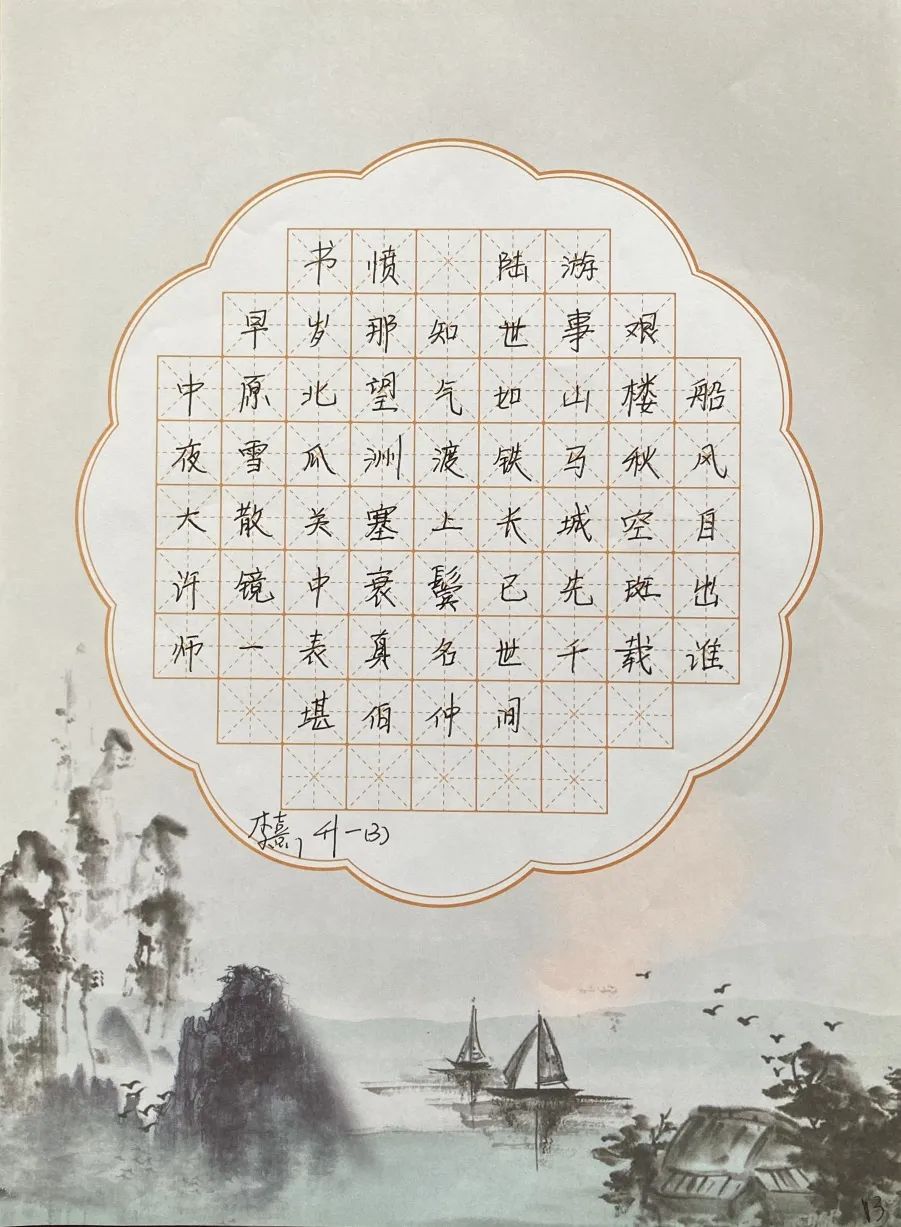 书愤 陆游
早岁那知世事艰
中原北望气如山楼船
夜雪瓜洲渡铁马秋风
大散关塞上长城空自
许镜中衰鬓已先斑出
师一表真名世千载谁
堪伯仲间
李熹, 升一(3)
13